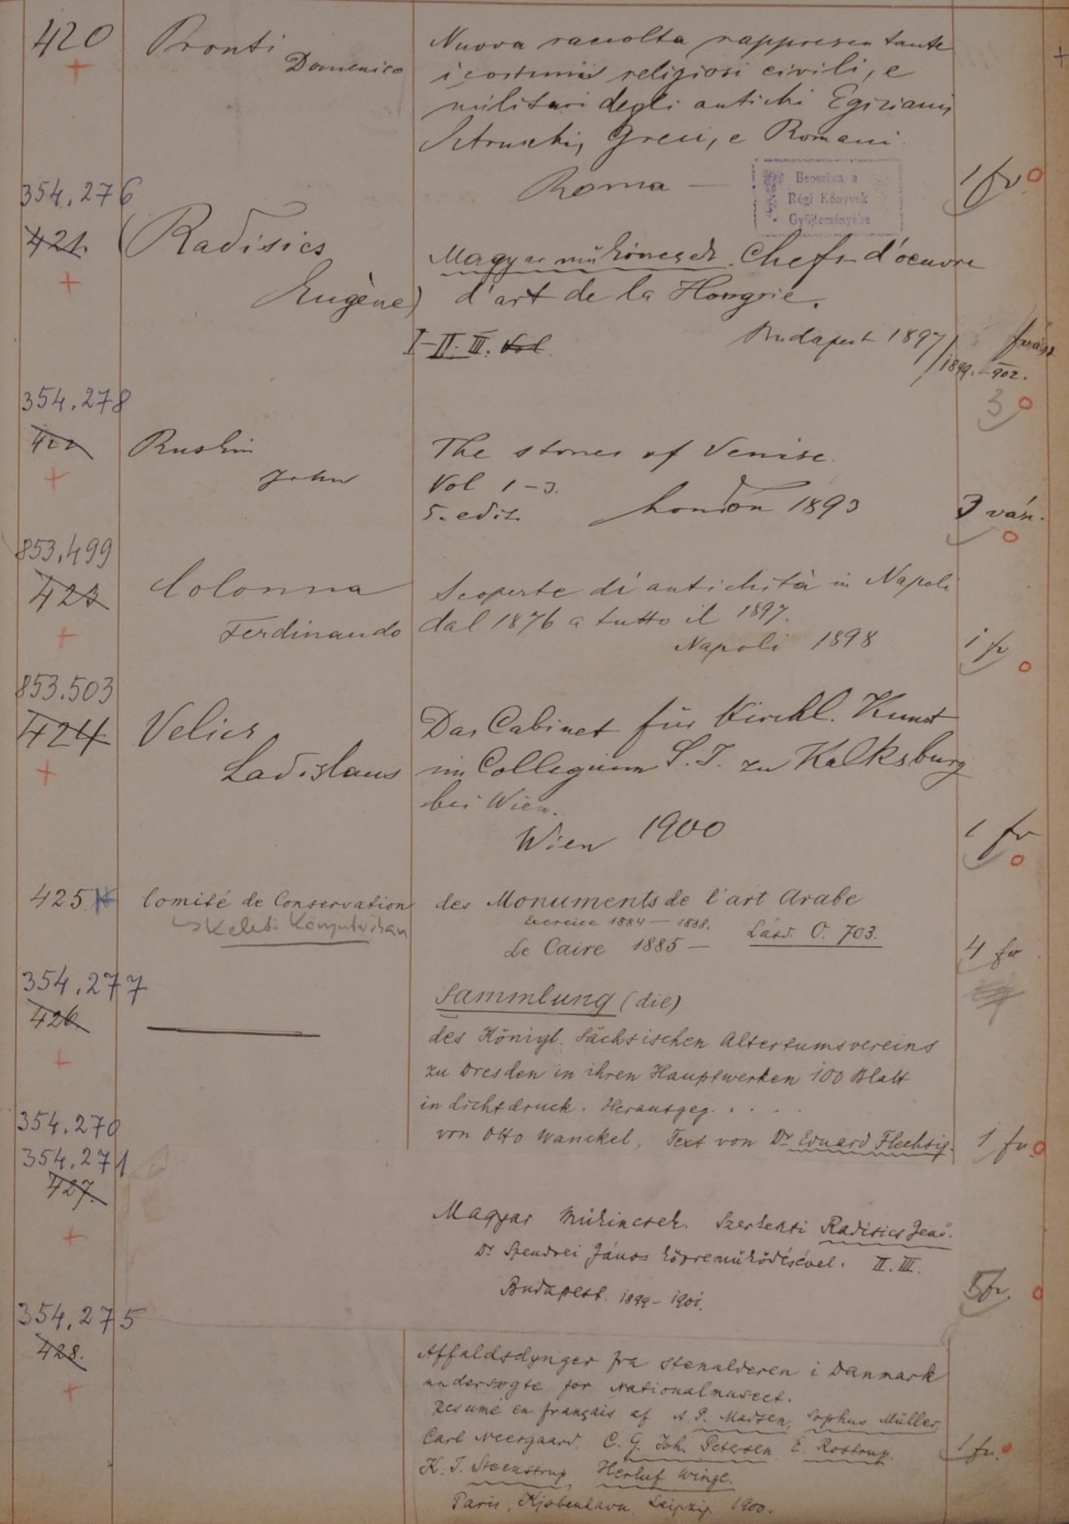 420 Pronti Domenico Nuova raccolta rappresentante
i costumi religiosi civili, e
militari degli antichi Egiziani,
Etruschi, Greci, e Romani.
Roma — 1 fv.
Bevezetve a
Régi Könyvek
Gyűjteményébe
354.276
421. (Radisics Eugène) Magyar műkincsek. Chefs d'oeuvre
d'art de la Hongrie.
I-II. III. Vol. Budapest 1897/1899.-902.
3
354.278
422 Ruskin John The stones of Venise.
Vol 1-3.
5. edit. London 1893 3 vász.
853.499
423 Colonna Ferdinando Scoperte di antichità in Napoli
dal 1876 a tutto il 1897.
Napoli 1898 1 fv
853.503
424 Velics Ladislaus Das Cabinet für Kirchl. Kunst
im Collegium S. J. zu Kalksburg
bei Wien.
Wien 1900 1 fv
425 Comité de Conservation des Monuments de l'art Arabe
Keleti Könyvtárban
Exercice 1884 — 1888.
Le Caire 1885 — Lásd. O. 703. 4 fv
354.277
426. Sammlung (die)
des Königl. Sächsischen Altertumsvereins
zu Dresden in ihren Hauptwerken 100 Blatt
in Lichtdruck. Herausgeg. . . . .
von Otto Wanckel, Text von Dr Eduard Flechsig. 1 fv.
354.270
354.271
427. Magyar Műkincsek. Szerkeszti Radisics Jenő.
Dr Szendrei János közreműködésével. II. III.
Budapest. 1899 - 1901. 5 fv.
354.275
428. Affaldsdynger fra stenalderen i Danmark
undersøgte for Nationalmuseet.
Resumé en français af A. P. Madsen, Sophus Müller,
Carl Neergaard, C. G. Joh. Petersen, E. Rostrup,
K. J. Steenstrup, Herluf Winge.
Paris, Kjøbenhavn, Leipzig. 1900. 1 fv.